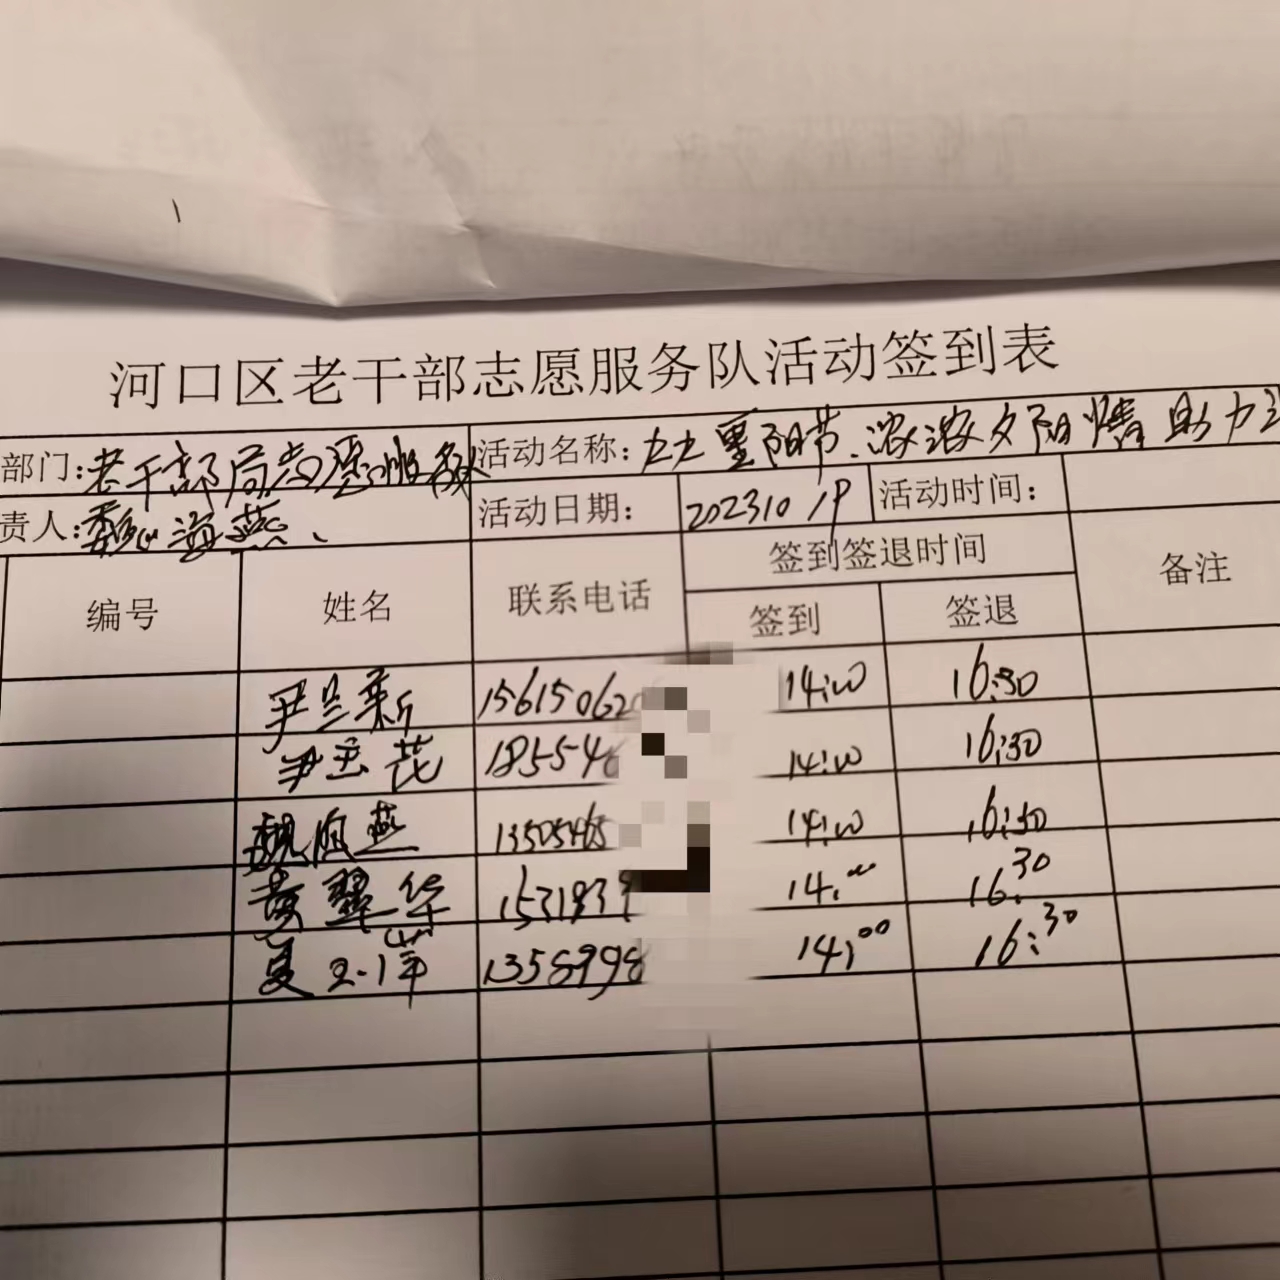 河口区老干部志愿服务队活动签到表
部门:老干部局志愿服务队 活动名称:九九重阳节、浓浓夕阳情 助力
责人:魏海燕、 活动日期: 202310 19 活动时间:
编号 姓名 联系电话 签到签退时间 备注
签到 签退
尹兰新 156150620 14:00 16:30
尹玉花 185546 14:00 16:30
魏海燕 13505465 14:00 16:30
黄翠华 1531839 14:00 16:30
1358998 14:00 16:30